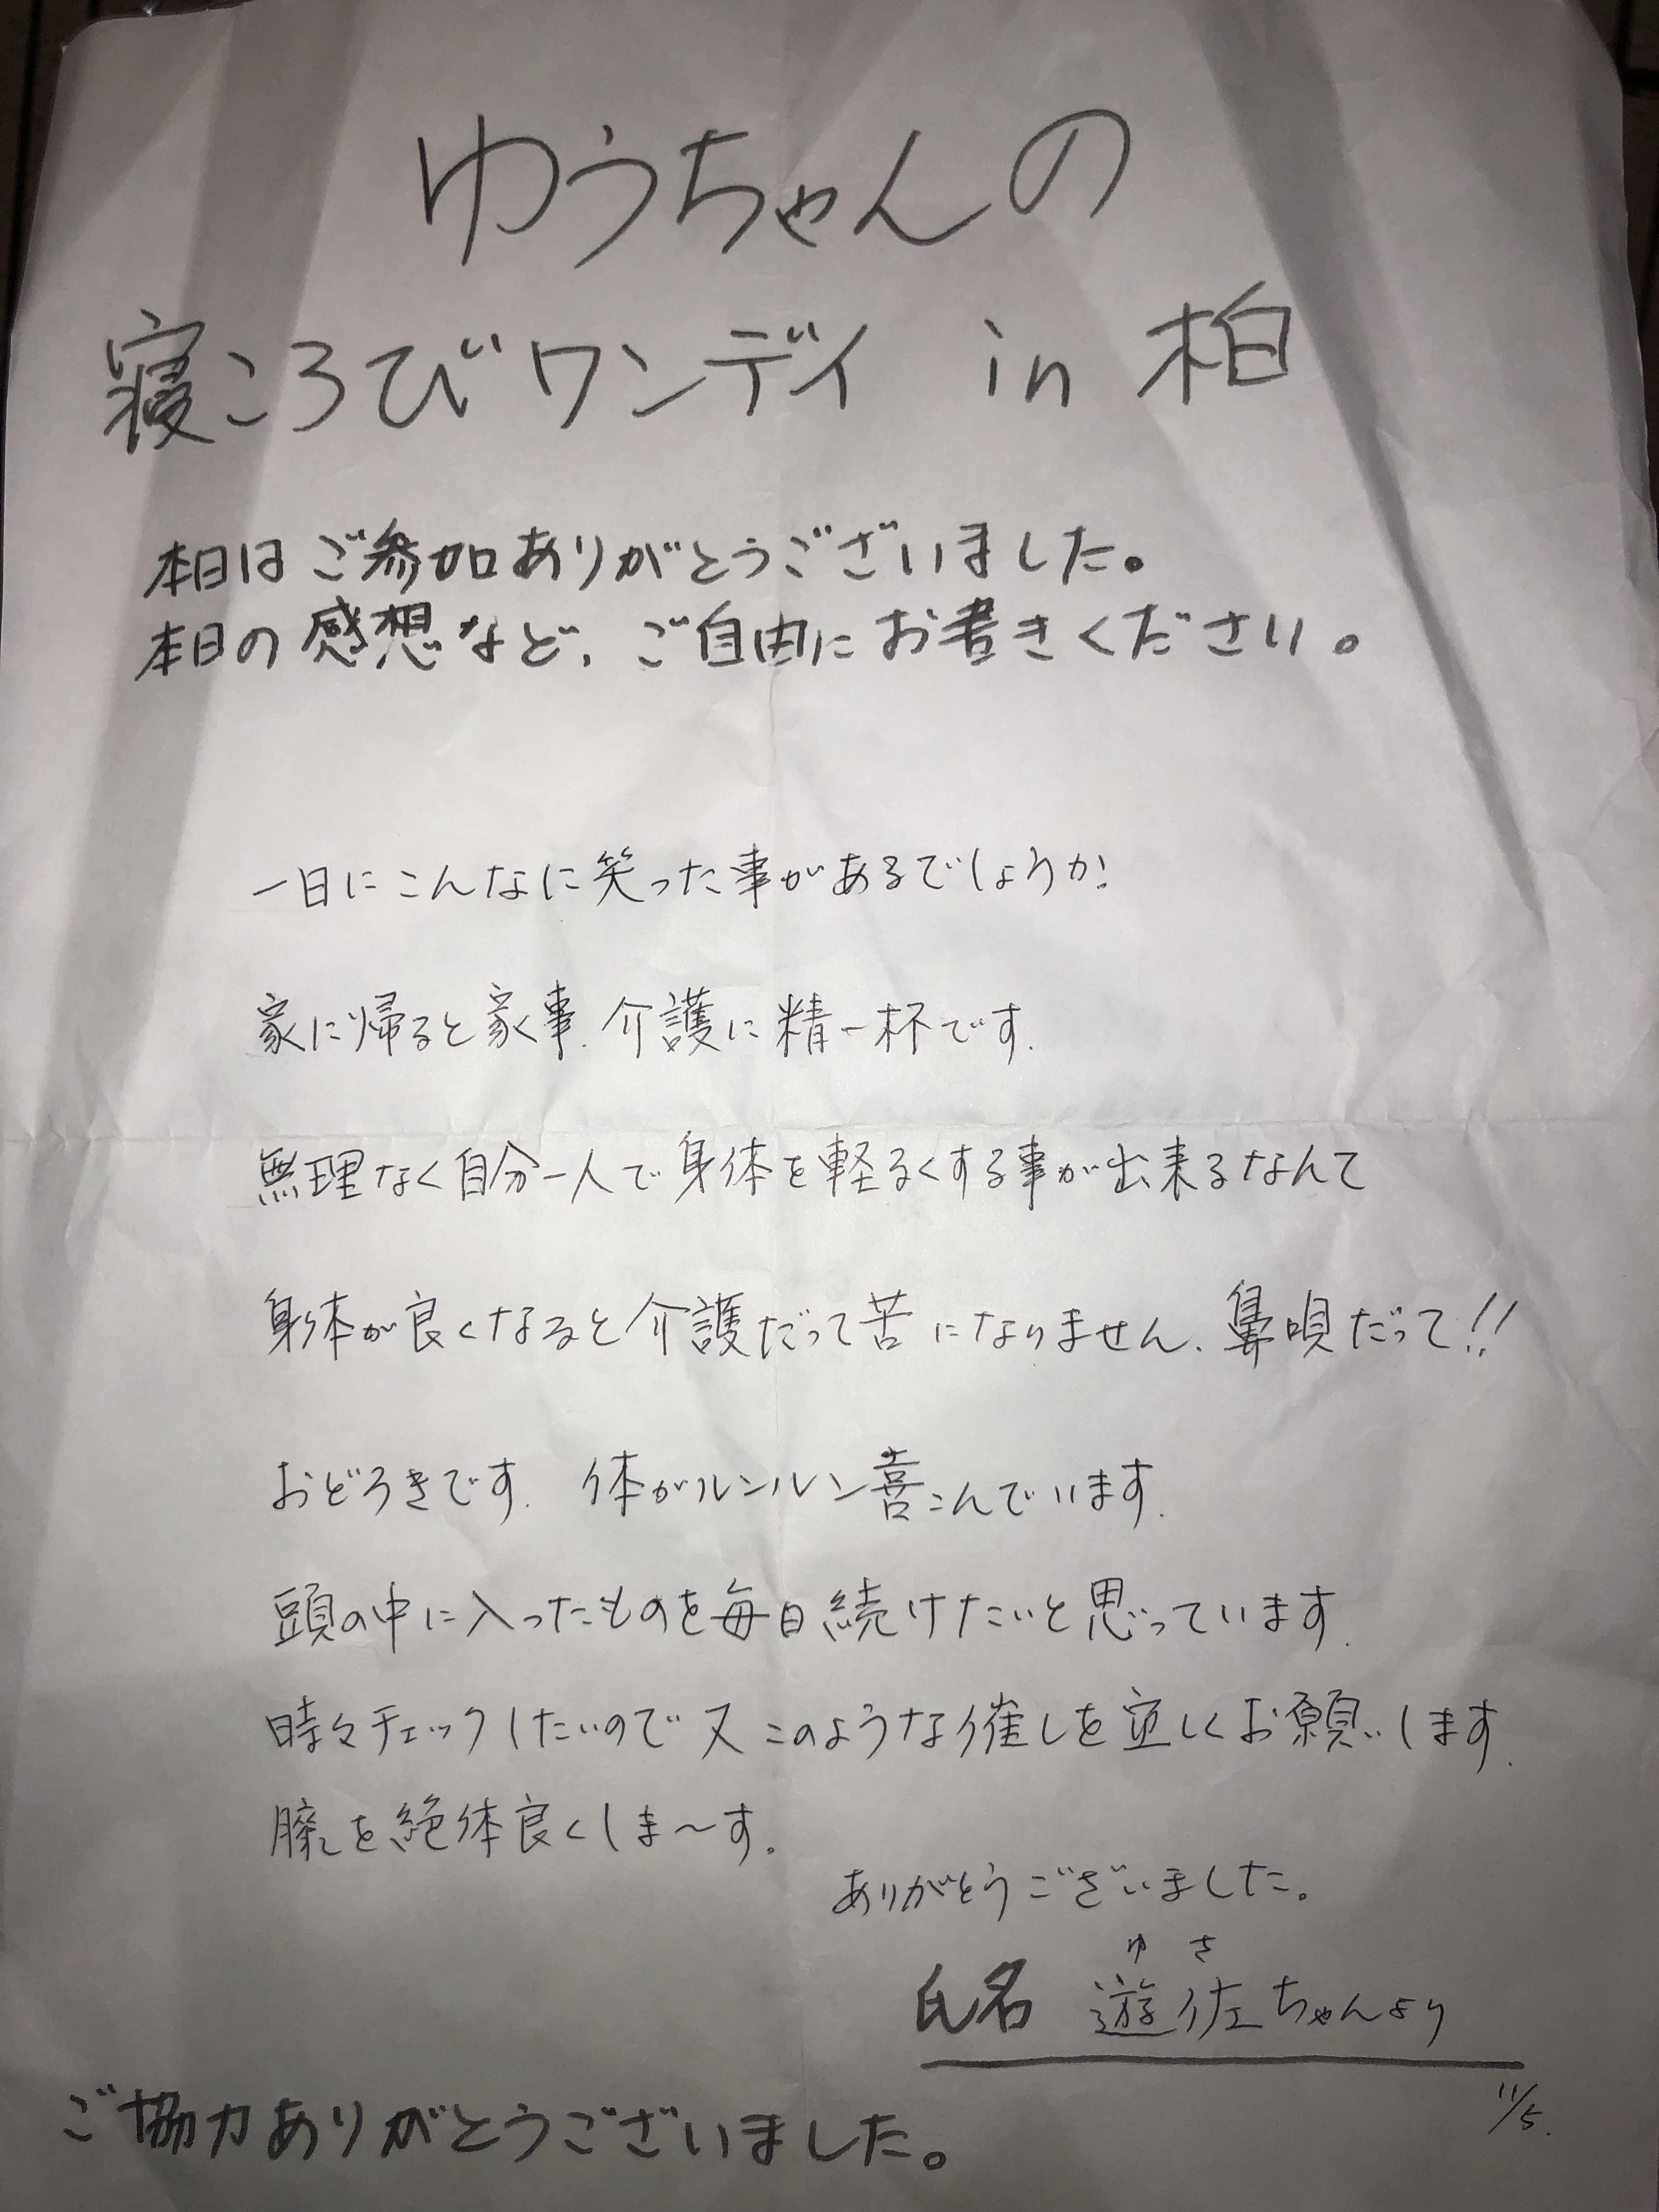 ゆうちゃんの
寝ころびワンデイ in 柏
本日はご参加ありがとうございました。
本日の感想など、ご自由にお書きください。
一日にこんなに笑った事があるでしょうか!
家に帰ると家事、介護に精一杯です.
無理なく自分一人で身体を軽るくする事が出来るなんて
身体が良くなると介護だって苦になりません、鼻唄だって!!
おどろきです. 体がルンルン喜こんでいます.
頭の中に入ったものを毎日続けたいと思っています.
時々チェックしたいので又このような催しを宜しくお願いします.
膝を絶体良くしま〜す.
ありがとうございました。
ゆ さ
氏名 遊佐ちゃんより
11/5.
ご協力ありがとうございました。